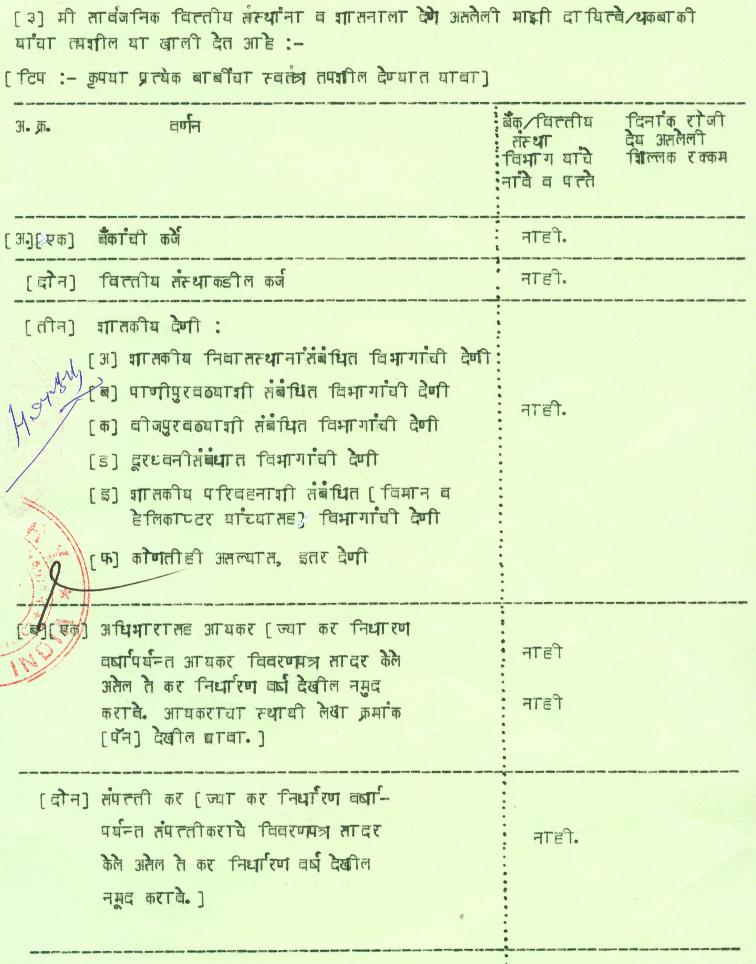 [ ३ ] मी सार्वजनिक वित्तीय संस्थांना व शासनाला देणे असलेली माझी दायित्वे/थकबाकी
यांचा तपशील या खाली देत आहे :-
[ टिप :- कृपया प्रत्येक बाबींचा स्वतंत्र तपशील देण्यात यावा ]
अ. क्र. वर्णन बँक/वित्तीय संस्था विभाग यांचे नांवे व पत्ते दिनांक रोजी देय असलेली शिल्लक रक्कम
[अ.][एक] बँकांची कर्जे नाही.
[दोन] वित्तीय संस्थाकडील कर्ज नाही.
[तीन] शासकीय देणी :
[अ] शासकीय निवासस्थानांसंबंधित विभागांची देणी
[ब] पाणीपुरवठ्याशी संबंधित विभागांची देणी नाही.
[क] वीजपुरवठ्याशी संबंधित विभागांची देणी
[ड] दूरध्वनीसंबंधात विभागांची देणी
[इ] शासकीय परिवहनाशी संबंधित [ विमान व
हेलिकाप्टर यांच्यासह] विभागांची देणी
[फ] कोणतीही असल्यास, इतर देणी
[ब][एक] अधिभारासह आयकर [ ज्या कर निर्धारण
वर्षापर्यन्त आयकर विवरणपत्र सादर केले नाही
असेल ते कर निर्धारण वर्ष देखील नमुद
करावे. आयकराचा स्थायी लेखा क्रमांक नाही
[पॅन] देखील द्यावा. ]
[दोन] संपत्ती कर [ ज्या कर निर्धारण वर्षा-
पर्यन्त संपत्तीकराचे विवरणपत्र सादर नाही.
केले असेल ते कर निर्धारण वर्ष देखील
नमूद करावे. ]